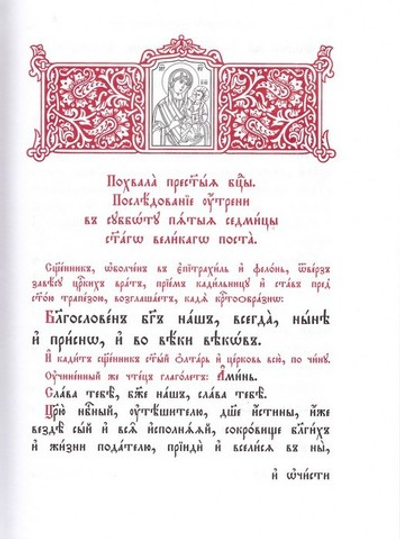 Похвала̀ прест҃ы́ѧ бцⷣы.
Послѣ́дованїе ᲂу҆́трени
въ сꙋббѡ́тꙋ пѧ́тыѧ седми́цы
ст҃а́гѡ вели́кагѡ поста̀.
Сщ҃е́нникъ, ѡ҆болче́нъ въ є҆пїтрахи́ль и҆ фело́нь, ѿве́рзъ
завѣ́сꙋ цр҃кихъ вра́тъ, прїе́мъ кади́льницꙋ и҆ ста́въ пред̾
ст҃о́ю трапе́зою, возглаша́етъ, кадѧ̀ крⷭ҇тоѡбра́знѡ:
Бл҃гослове́нъ бг҃ъ на́шъ, всегда̀, ны́нѣ
и҆ при́снѡ, и҆ во вѣ́ки вѣкѡ́въ.
И҆ кади́тъ сщ҃е́нникъ ст҃ы́й ѻ҆лта́рь и҆ це́рковь всю̀, по чи́нꙋ.
Оу҆чине́нный же чте́цъ глаго́летъ: А҆ми́нь.
Сла́ва тебѣ̀, бж҃е на́шъ, сла́ва тебѣ̀.
Цр҃ю̀ нбⷭ҇ный, ᲂу҆тѣ́шителю, дш҃е и҆́стины, и҆́же
вездѣ̀ сы́й и҆ всѧ̑ и҆сполнѧ́ѧй, сокро́вище бл҃ги́хъ
и҆ жи́зни пода́телю, прїидѝ и҆ всели́сѧ в̾ ны̀,
и҆ ѡ҆чи́сти